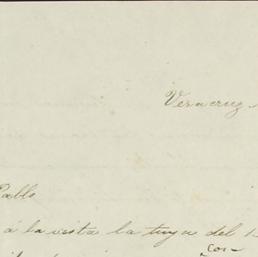 Veracruz
Pablo
á la vista la tuya del 1
con